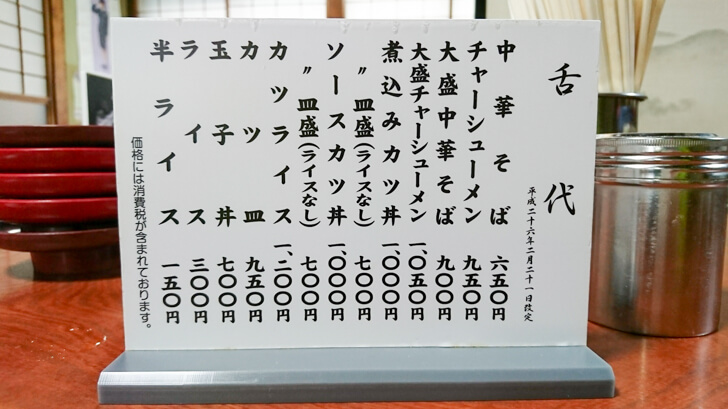 舌代
平成二十六年二月二十一日改定
中華そば 六五〇円
チャーシューメン 九五〇円
大盛中華そば 九〇〇円
大盛チャーシューメン 一、〇五〇円
煮込みカツ丼 一、〇〇〇円
〃皿盛(ライスなし) 七〇〇円
ソースカツ丼 一、〇〇〇円
〃皿盛(ライスなし) 七〇〇円
カツライス 一、二〇〇円
カツ皿 九五〇円
玉子丼 七〇〇円
ライス 三〇〇円
半ライス 一五〇円
価格には消費税が含まれております。